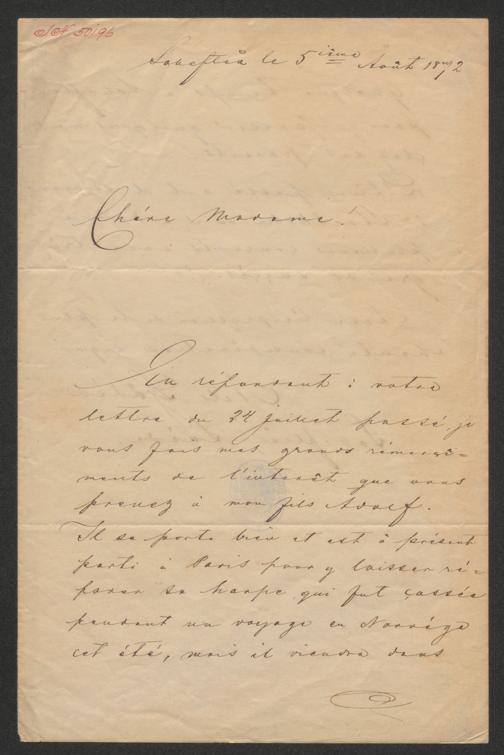 le 5ième Août 1872
Chére Madame!
En répondant à votre
lettre du 24 Juillet passé, je
vous fais mes grands remerci-
ments de l'interêt que vous
prenez à mon fils Adolf.
Il se porte bièn et est à présent
parti à Paris pour y laisser ré-
parer sa harpe, qui fut cassée
pendant un voyage en Norvége
cet été, mais il viendra dans